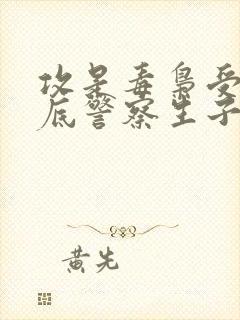 攻是毒枭受
底警察生子
黄先